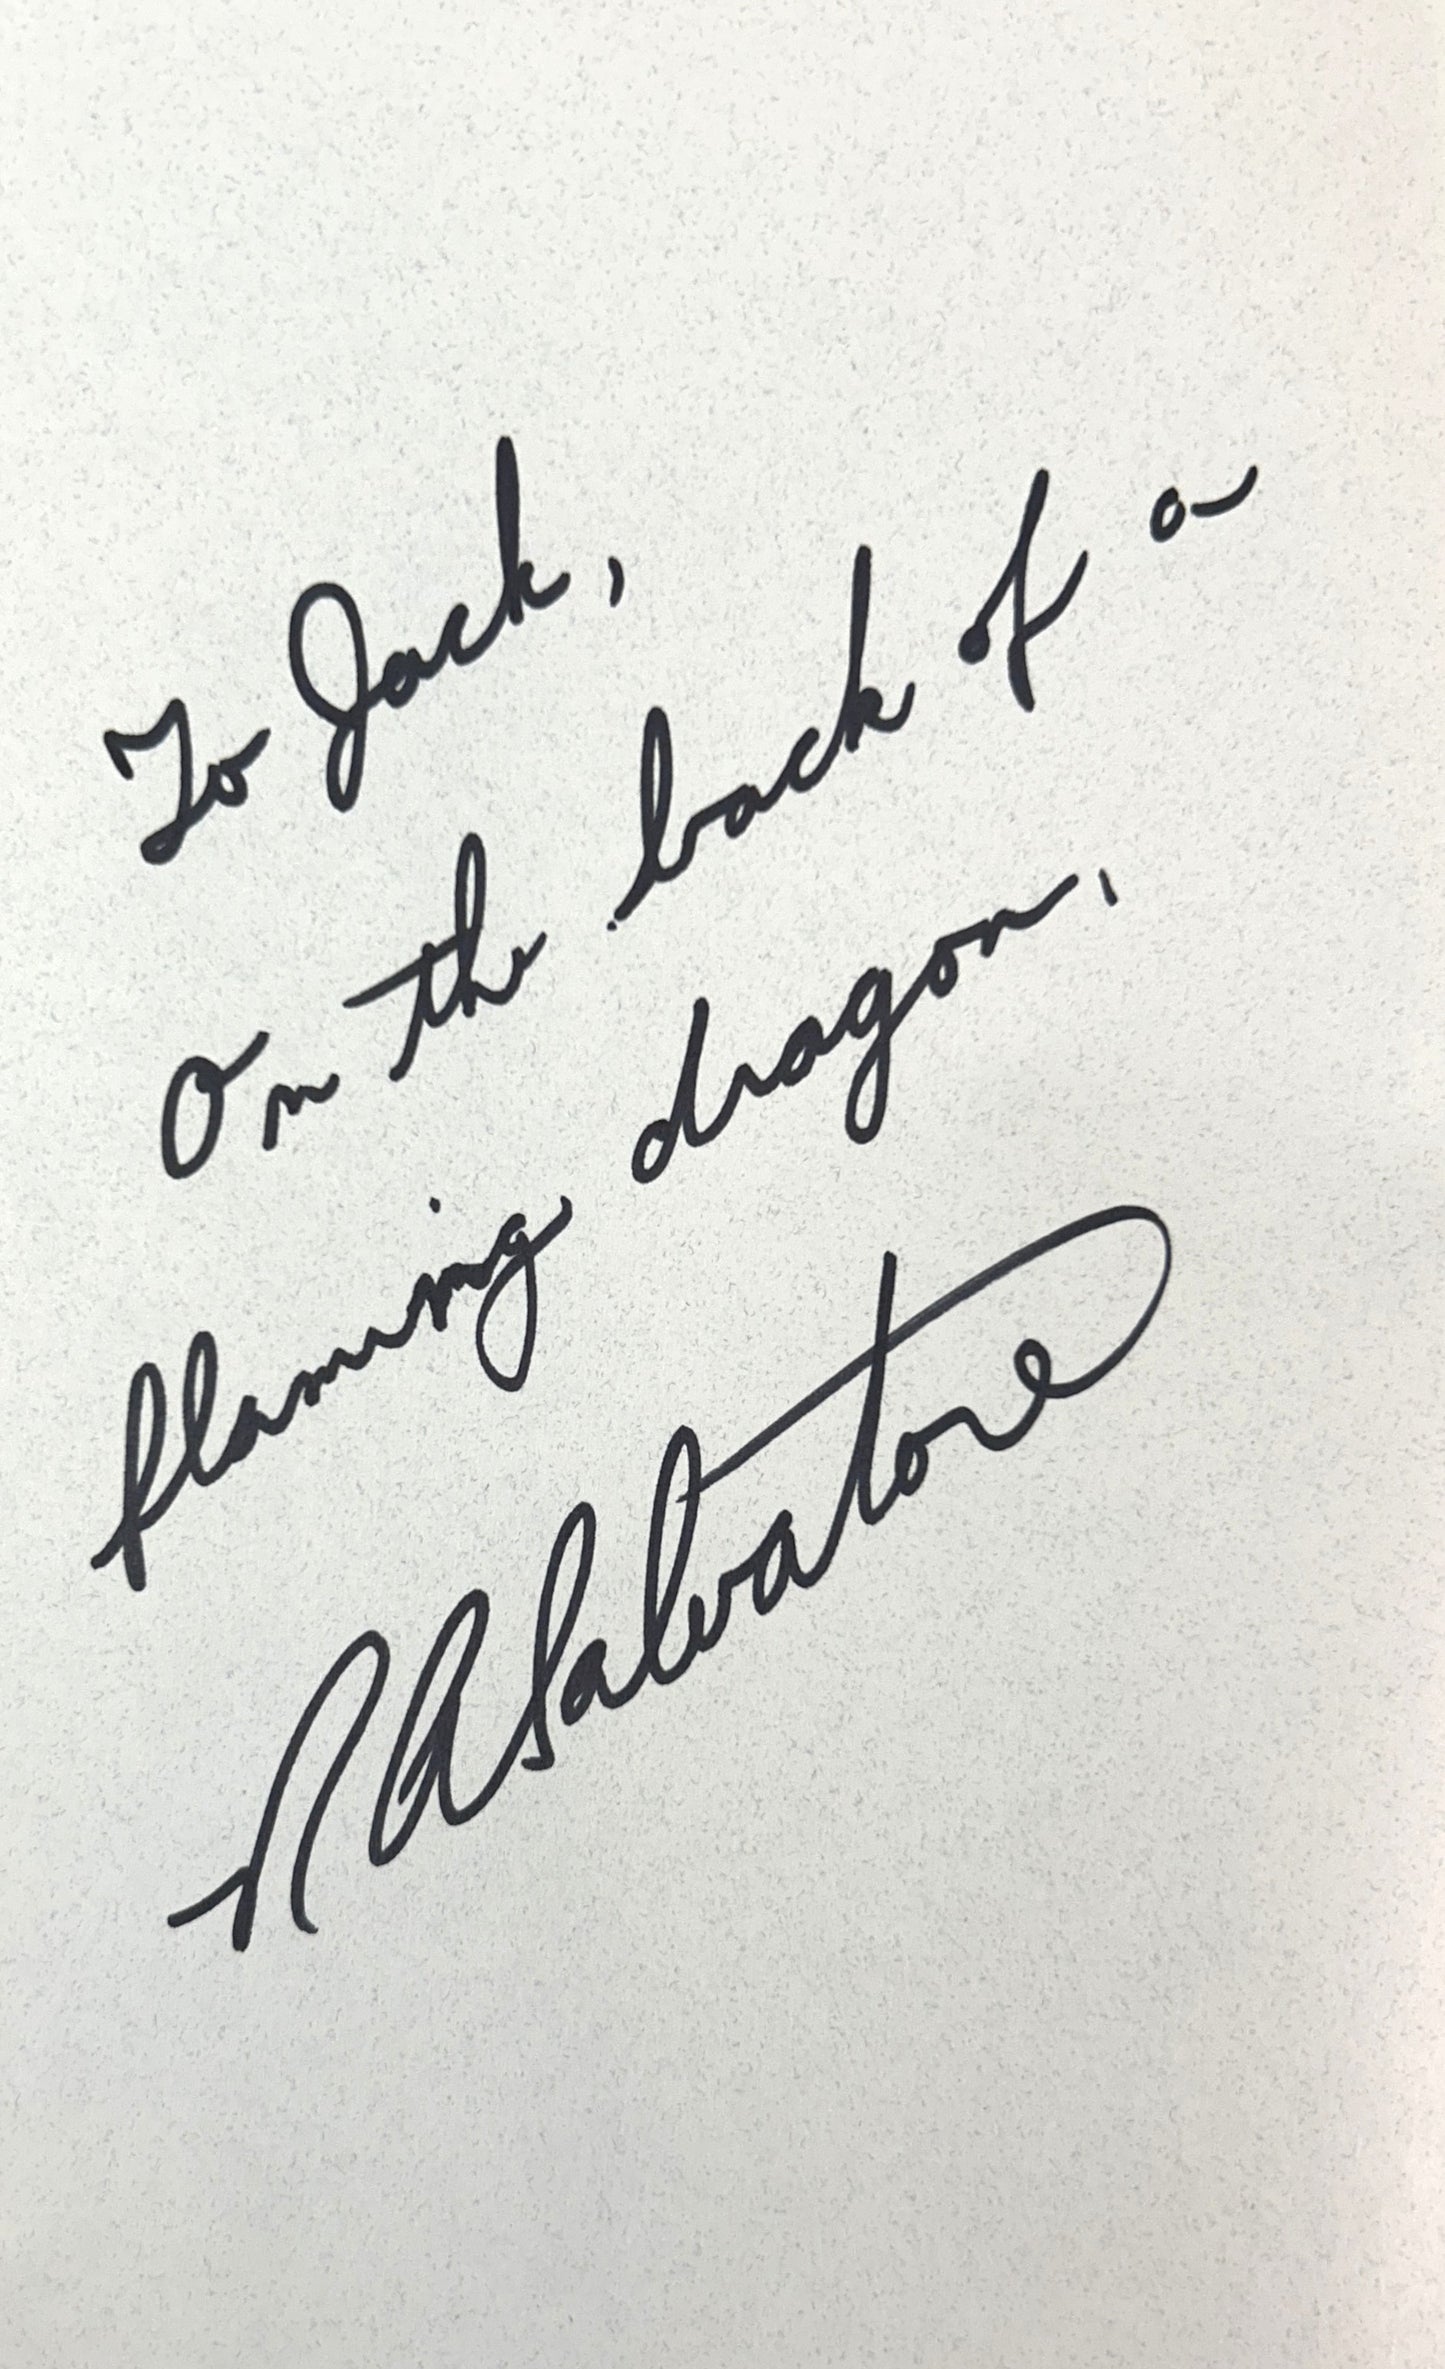 To Jack,
On the back of a
flaming dragon,
RASalvatore